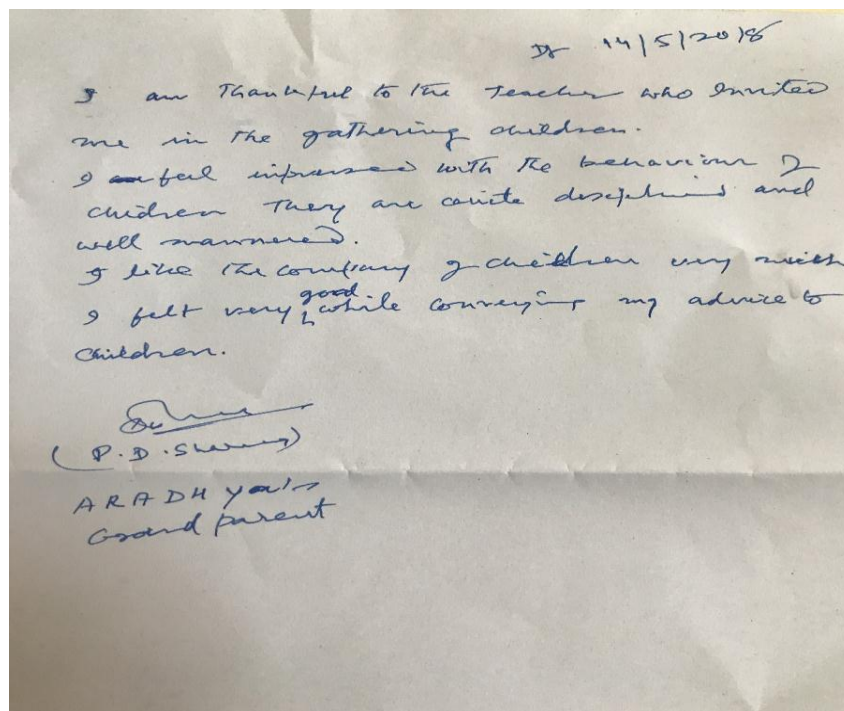 Dt 14/5/2018
I am Thankful to the Teacher who Invited
me in the gathering children.
I feel impressed with the behaviour of
children They are quite disciplined and
well mannered.
I like the company of children very much
I felt very good while conveying my advice to
children.
(P.D. Sharma)
ARADHya's
Grand parent